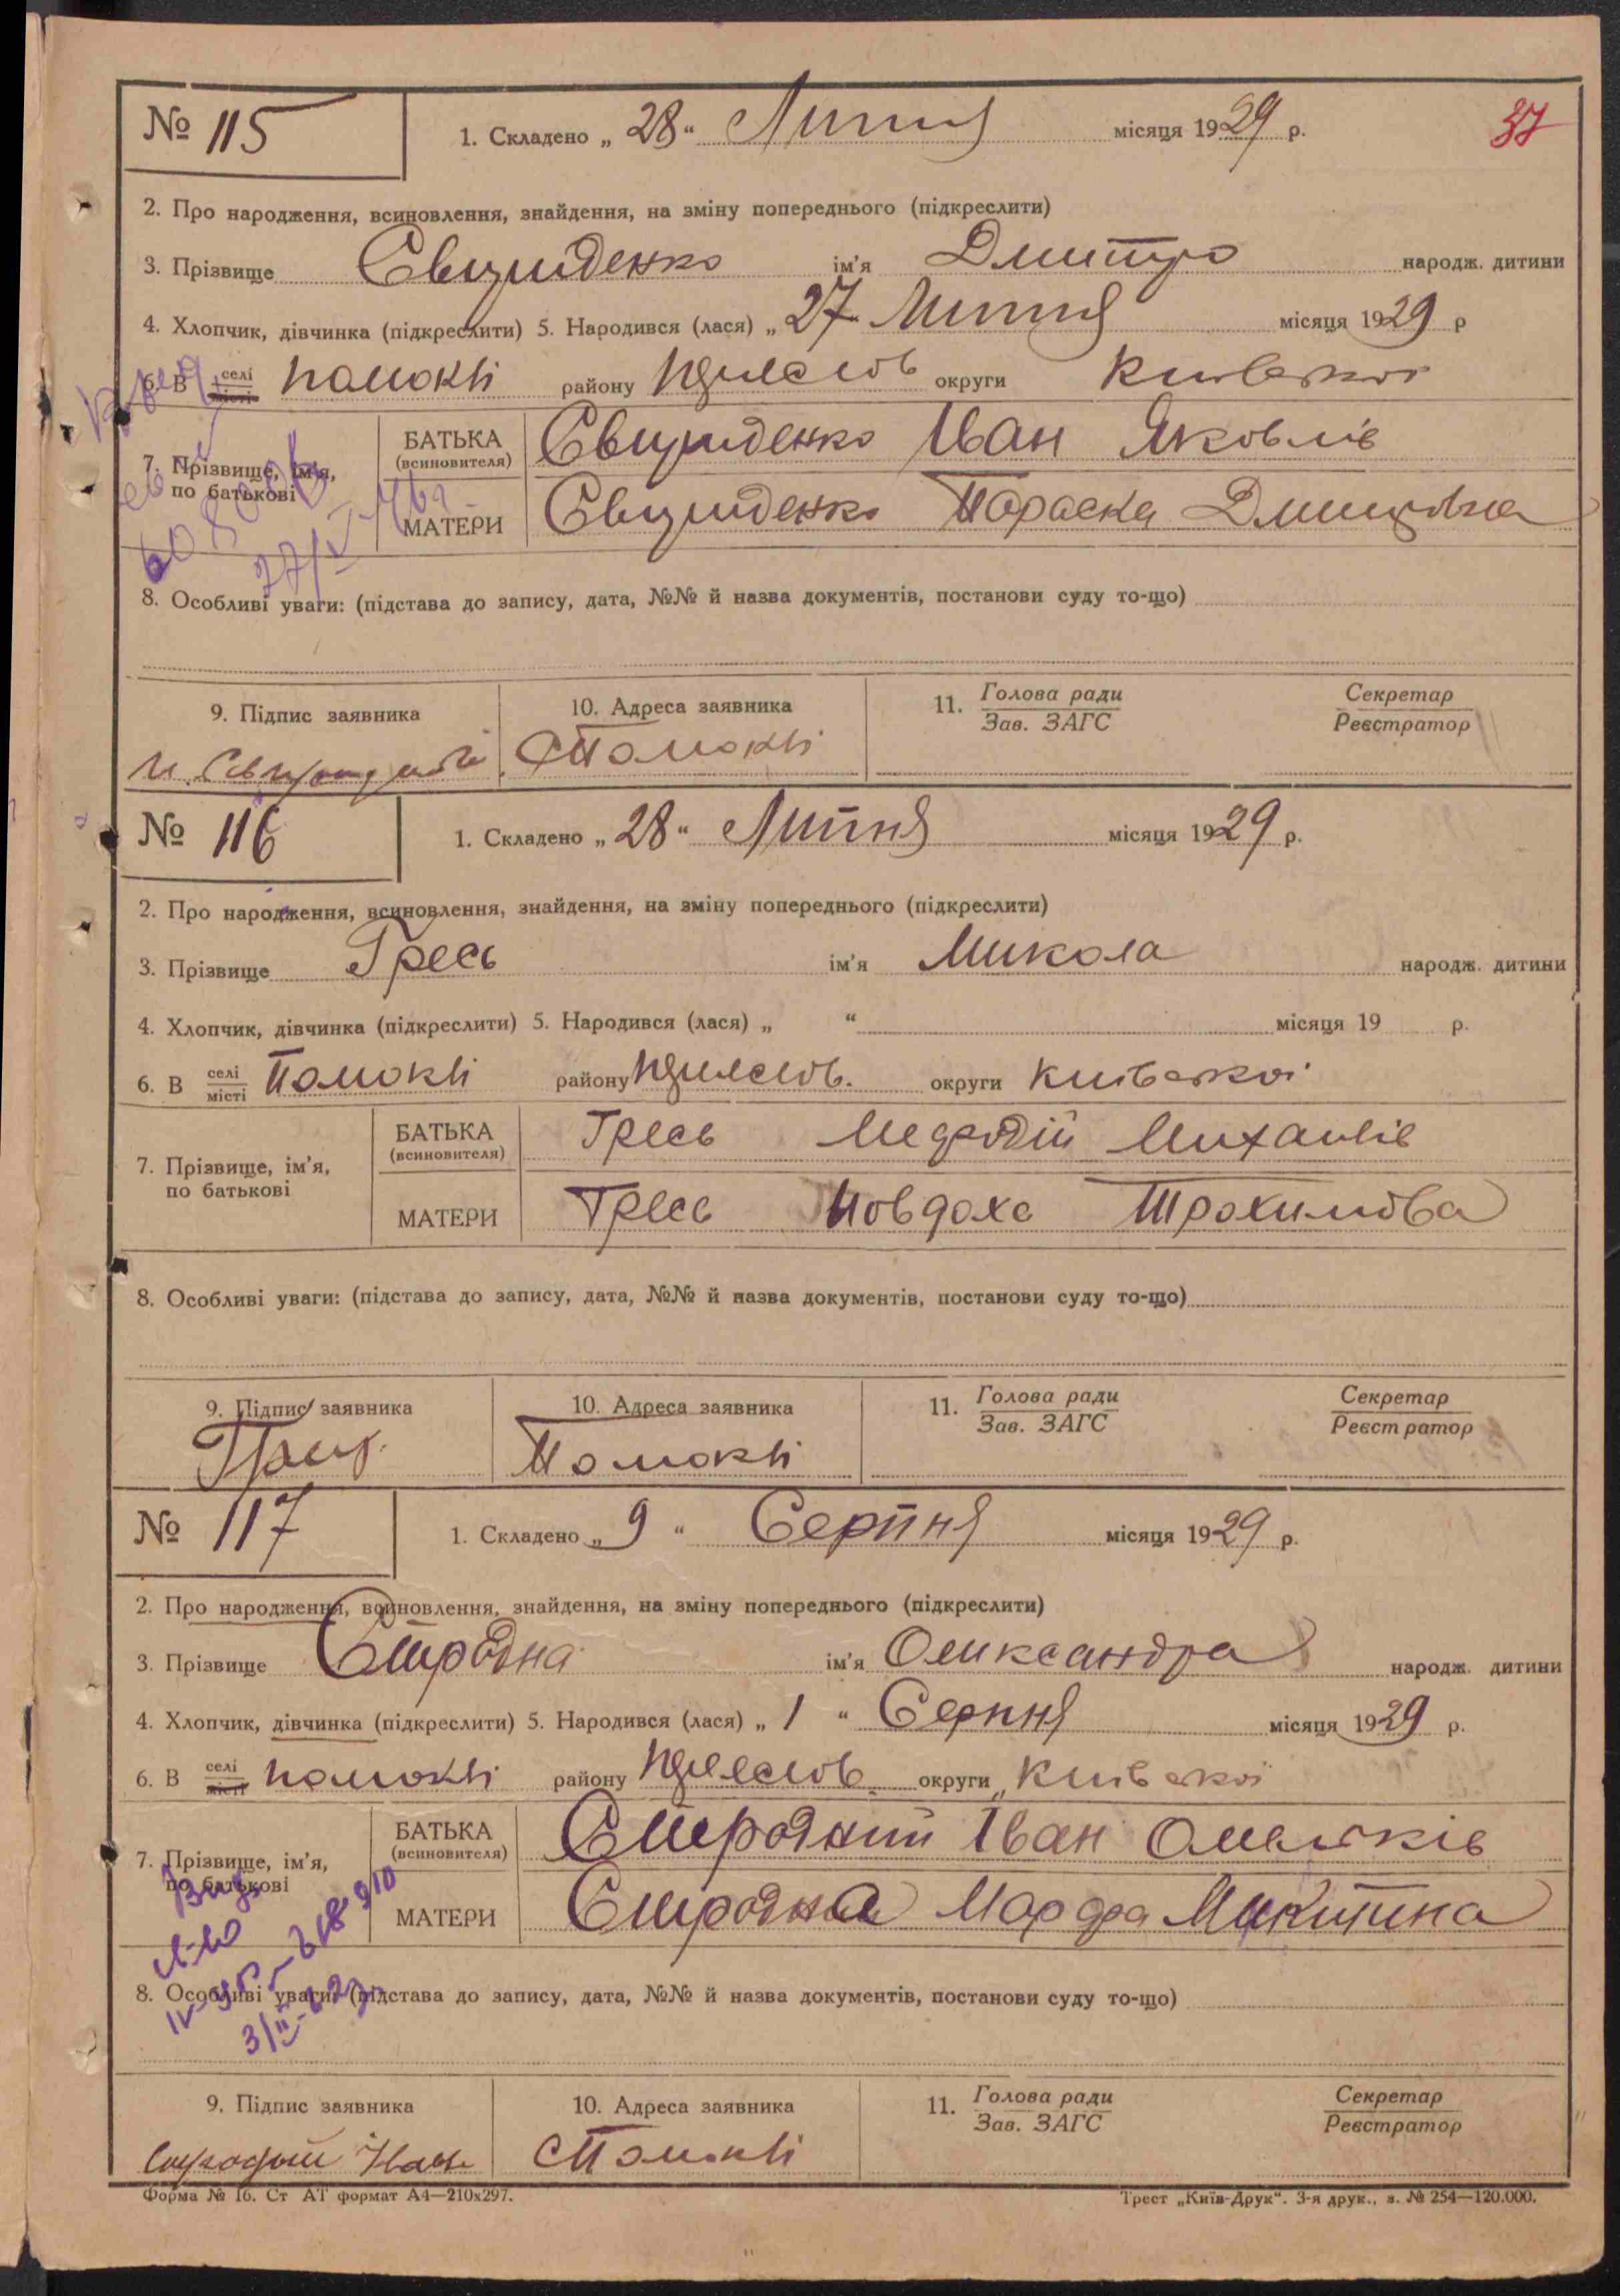 № 115 1. Складено „ 28 “ Липня місяця 1929 р. 37
2. Про народження, всиновлення, знайдення, на зміну попереднього (підкреслити)
3. Прізвище ім'я Дмитро народж. дитини
4. Хлопчик, дівчинка (підкреслити) 5. Народився (лася) „ 27 Липня місяця 1929 р
6. В селі місті Помоклі району округи Київської
7. Прізвище, ім'я, по батькові
БАТЬКА (всиновителя) Іван Яковлів
МАТЕРИ Параска Дмитрівна
8. Особливі уваги: (підстава до запису, дата, №№ й назва документів, постанови суду то-що)
9. Підпис заявника 10. Адреса заявника 11. Голова ради Зав. ЗАГС Секретар Реєстратор
с Помоклі
№ 116 1. Складено „ 28 “ Липня місяця 1929 р.
2. Про народження, всиновлення, знайдення, на зміну попереднього (підкреслити)
3. Прізвище Гресь ім'я Микола народж. дитини
4. Хлопчик, дівчинка (підкреслити) 5. Народився (лася) „ “ місяця 19 р.
6. В селі місті Помоклі району округи Київської
7. Прізвище, ім'я, по батькові
БАТЬКА (всиновителя) Гресь Мефодій Михайлів
МАТЕРИ Гресь Трохимова
8. Особливі уваги: (підстава до запису, дата, №№ й назва документів, постанови суду то-що)
9. Підпис заявника 10. Адреса заявника 11. Голова ради Зав. ЗАГС Секретар Реєстратор
Помоклі
№ 117 1. Складено „ 9 “ Серпня місяця 1929 р.
2. Про народження, всиновлення, знайдення, на зміну попереднього (підкреслити)
3. Прізвище ім'я Олександра народж. дитини
4. Хлопчик, дівчинка (підкреслити) 5. Народився (лася) „ 1 “ Серпня місяця 1929 р.
6. В селі місті Помоклі району округи Київської
7. Прізвище, ім'я, по батькові
БАТЬКА (всиновителя) Іван
МАТЕРИ Марфа Микитина
8. Особливі уваги: (підстава до запису, дата, №№ й назва документів, постанови суду то-що)
9. Підпис заявника 10. Адреса заявника 11. Голова ради Зав. ЗАГС Секретар Реєстратор
с Помоклі
Форма № 16. Ст АТ формат А4—210х297. Трест „Київ-Друк“. 3-я друк., з. № 254—120.000.